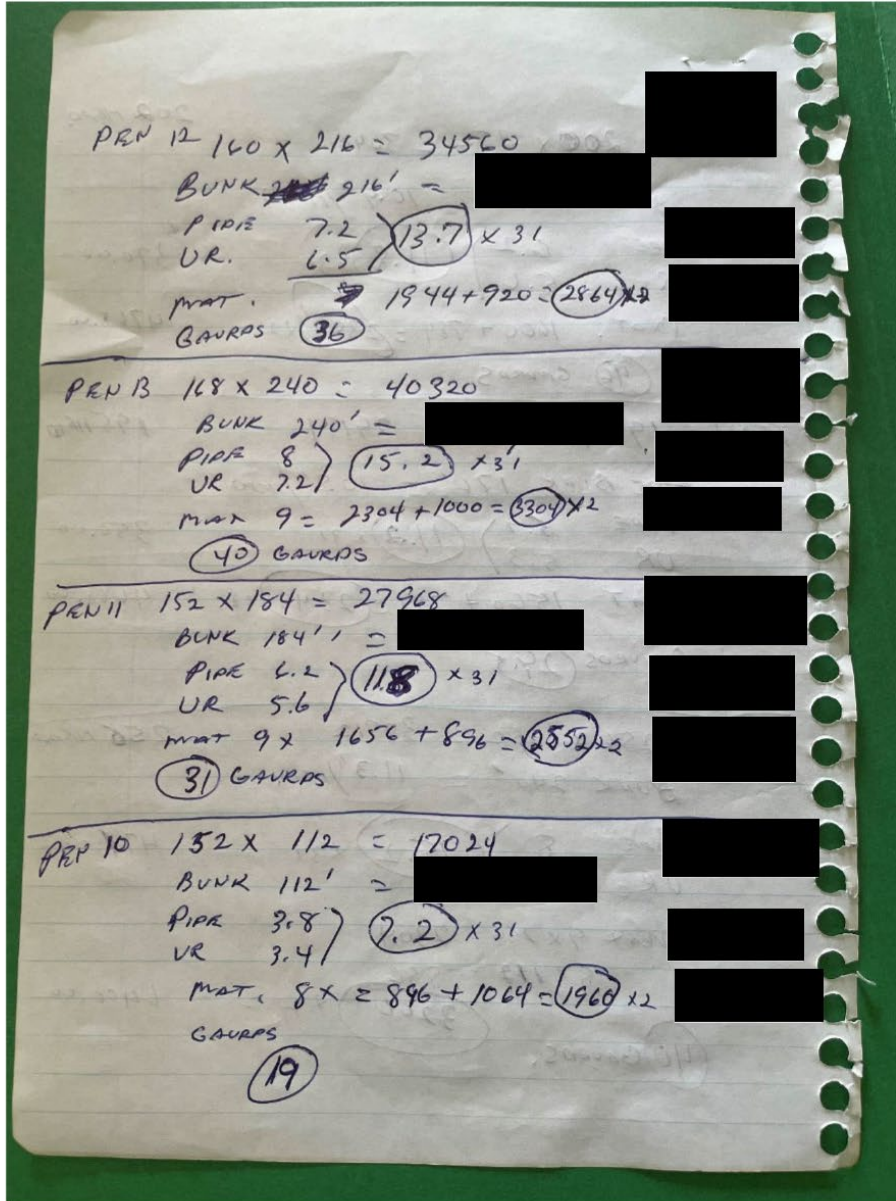 PEN 12 160 x 216 = 34560
BUNK 216' =
PIPE 7.2
UR. 6.5
13.7 x 31
MAT. 1944 + 920 = 2864 x2
GAURDS 36
PEN 13 168 x 240 = 40320
BUNK 240' =
PIPE 8
UR 7.2
15.2 x 31
MAT 9 = 2304 + 1000 = 3304 x 2
40 GAURDS
PEN 11 152 x 184 = 27968
BUNK 184' =
PIPE 6.2
UR 5.6
11.8 x 31
MAT 9 x 1656 + 896 = 2552 x 2
31 GAURDS
PEN 10 152 x 112 = 17024
BUNK 112' =
PIPE 3.8
UR 3.4
7.2 x 31
MAT. 8 x = 896 + 1064 = 1960 x2
GAURDS
19